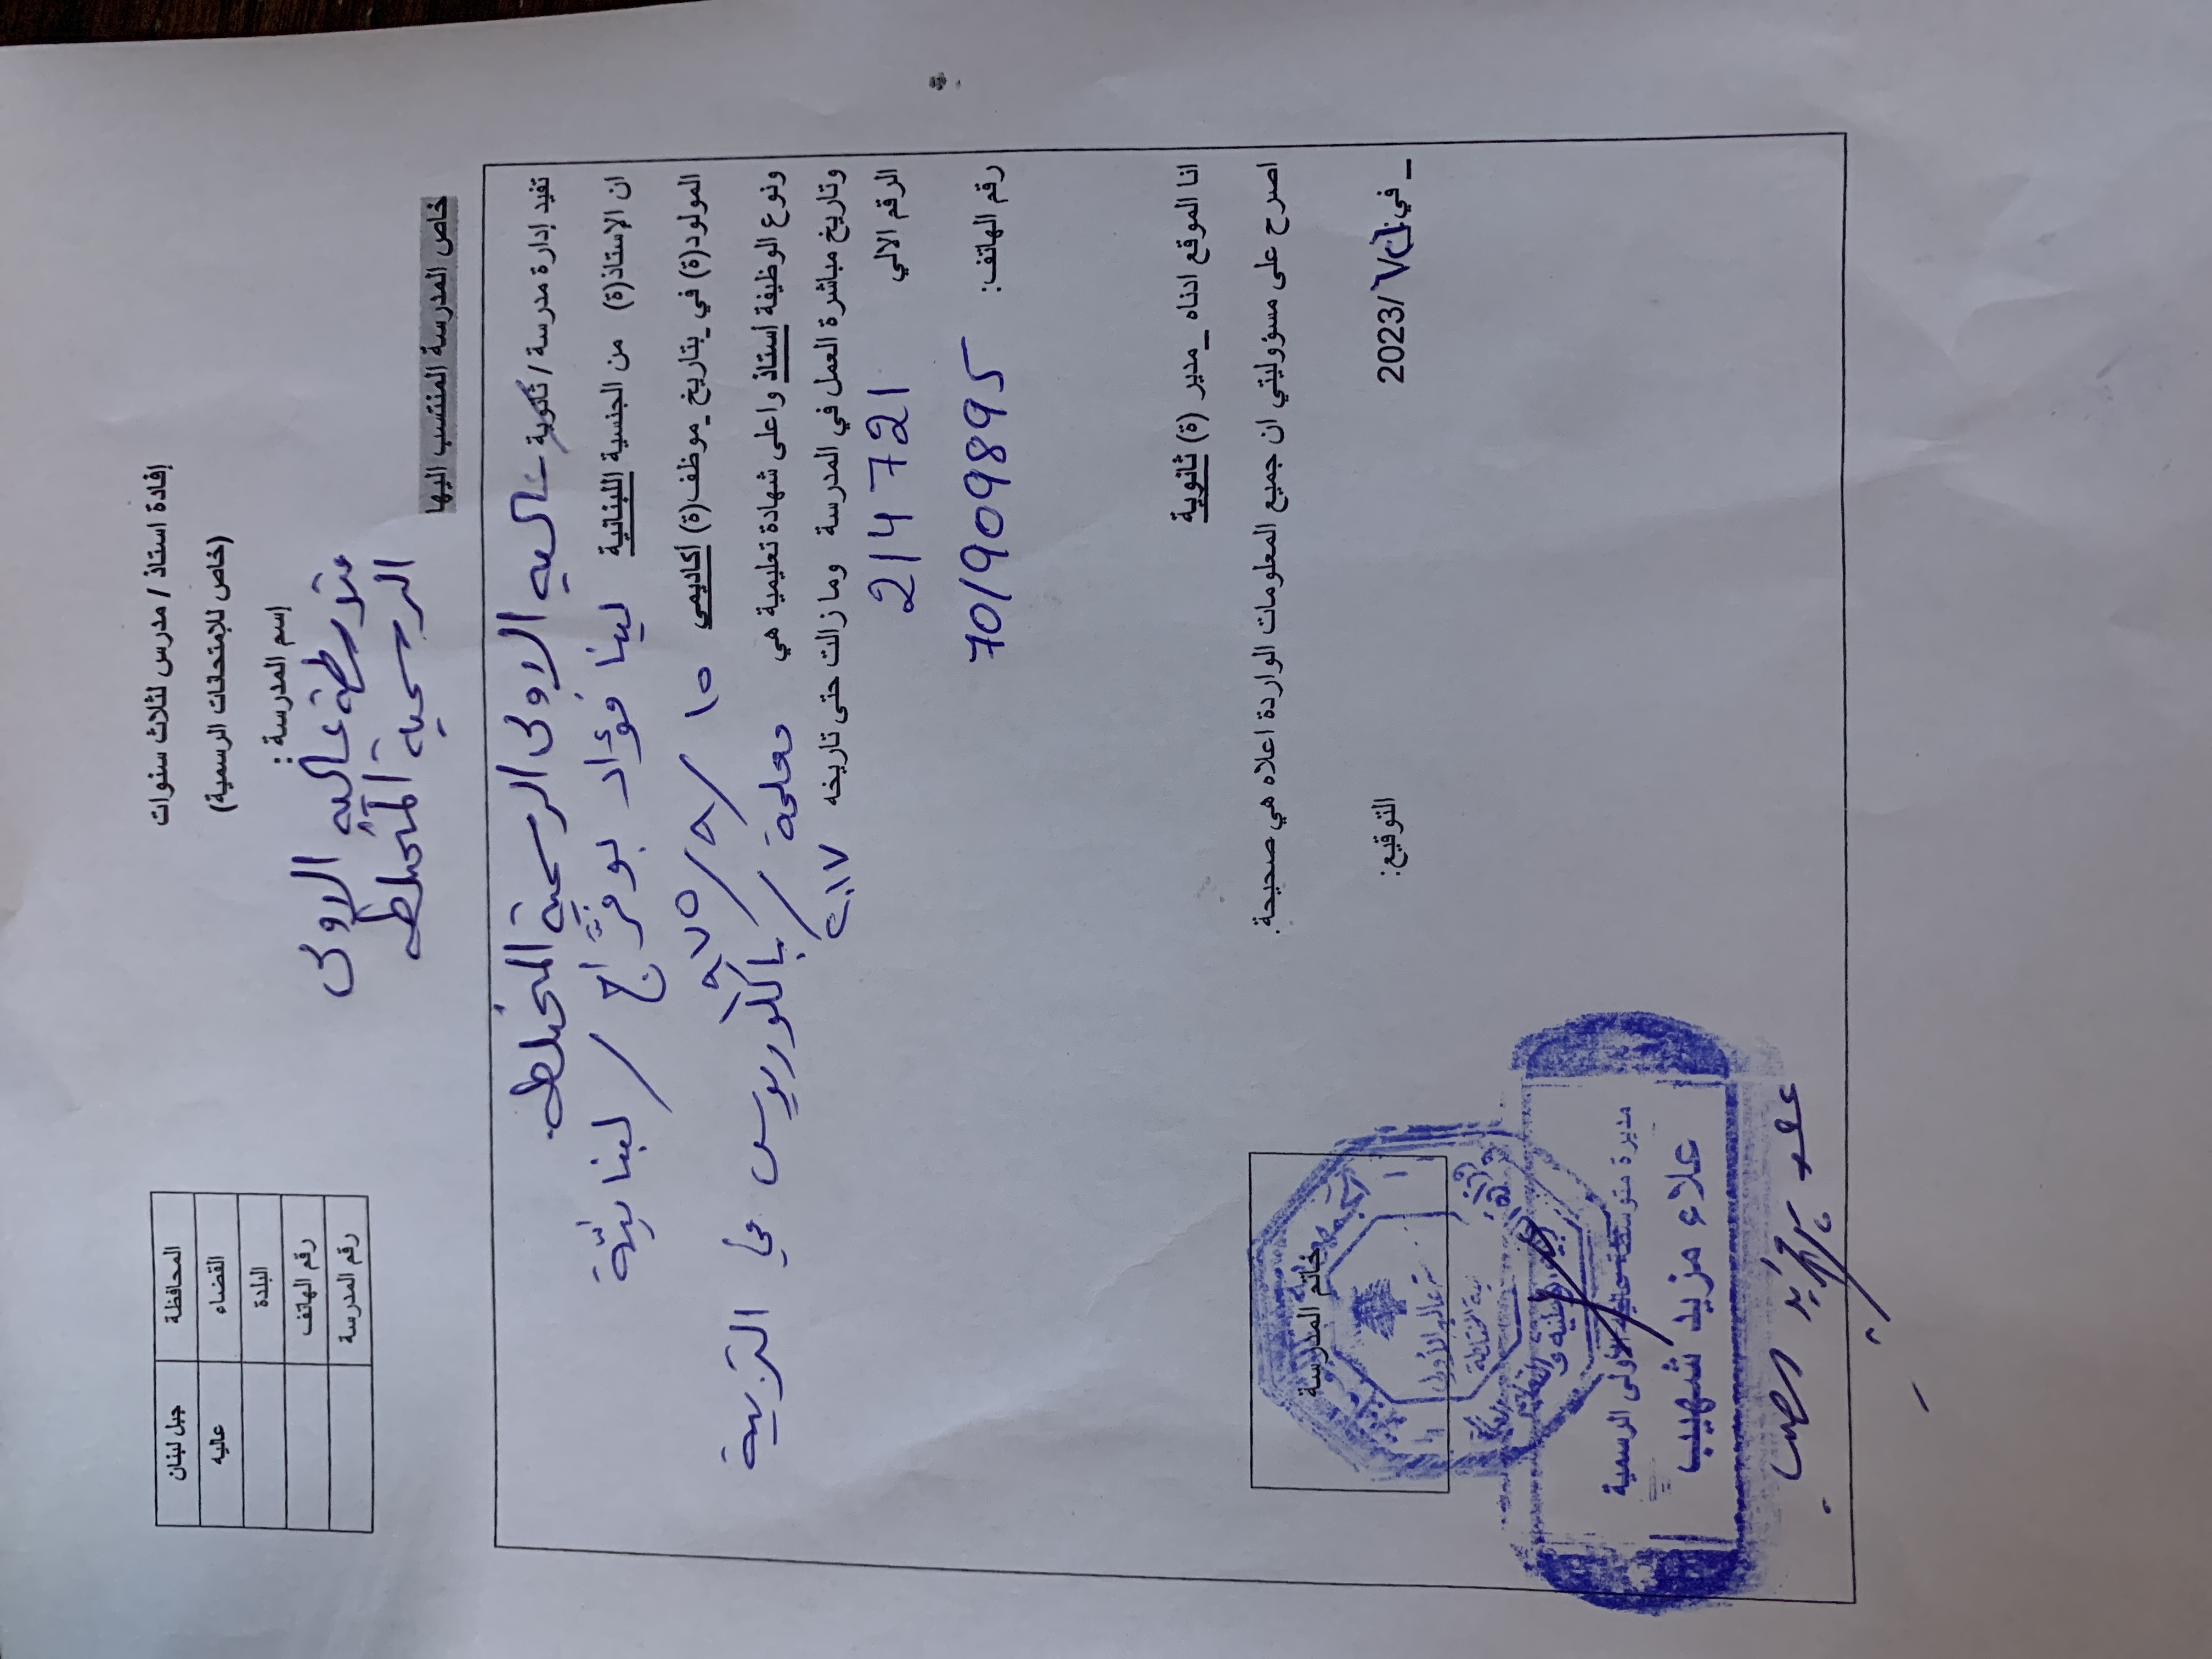 المحافظة جبل لبنان
القضاء عاليه
البلدة
رقم الهاتف
رقم المدرسة
إفادة استاذ / مدرس لثلاث سنوات
(خاص للإمتحانات الرسمية)
إسم المدرسة :
متوسطة عاليه الاولى
الرسمية المختلطة
خاص المدرسة المنتسب اليها
تفيد إدارة مدرسة / ثانوية عاليه الاولى الرسمية المختلطة
ان الاستاذ(ة) من الجنسية اللبنانية لينا فؤاد بو فرّاج / لبنانيّة
المولود(ة) في بتاريخ موظف(ة) اكاديمي ١٥ / ٨ / ١٩٧٥
ونوع الوظيفة استاذ واعلى شهادة تعليمية هي معلمة / باكلوريوس في التربية
وتاريخ مباشرة العمل في المدرسة ومازالت حتى تاريخه ٢٠١٧
الرقم الالي 214721
رقم الهاتف: 70/909895
انا الموقع ادناه _ مدير (ة) ثانوية
اصرح على مسؤوليتي ان جميع المعلومات الواردة اعلاه هي صحيحة.
_ في 2023/
التوقيع:
خاتم المدرسة
مديرة متوسطة عاليه الأولى الرسمية
علاء مزيد شهيب